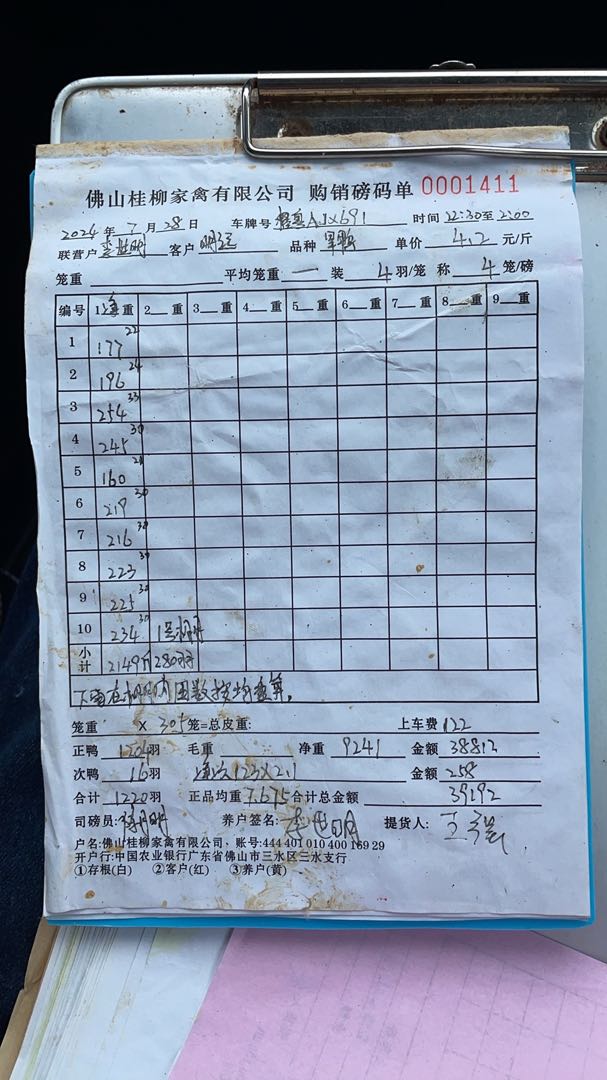 佛山桂柳家禽有限公司 购销磅码单 0001411
2024 年 7 月 28 日 车牌号 AJX691 时间 22:30至2:00
联营户 李世明 客户 品种 单价 4.2 元/斤
笼重 平均笼重 一 装 4 羽/笼 称 4 笼/磅
编号 1 净 重 2 重 3 重 4 重 5 重 6 重 7 重 8 重 9 重
1 177 22
2 196 24
3 254 33
4 245 30
5 160 20
6 219 30
7 216 30
8 223 30
9 225 30
10 234 30 1号棚
小计 2149斤 280羽
因数 按均重算。
笼重 X 305 笼=总皮重: 上车费 122
正鸭 1204 羽 毛重 净重 9241 金额 38812
次鸭 16 羽 净次 123×2.1 金额 258
合计 1220 羽 正品均重 7.675 合计总金额 39192
司磅员: 养户签名: 李世明 提货人:
户名:佛山桂柳家禽有限公司、账号:444 401 010 400 169 29
开户行:中国农业银行广东省佛山市三水区三水支行
①存根(白) ②客户(红) ③养户(黄)